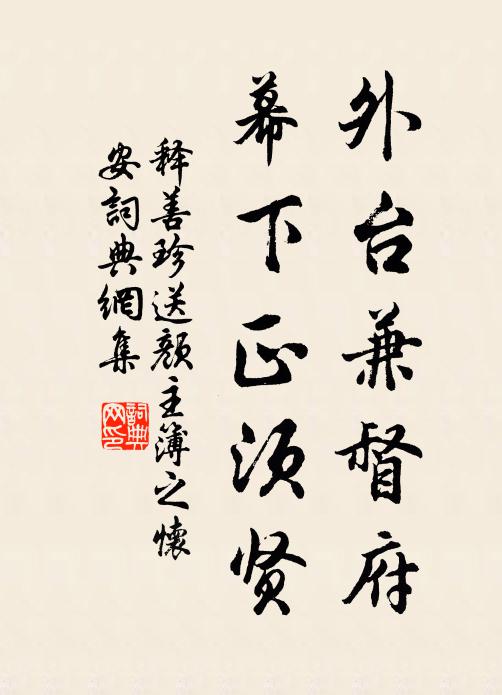 外台兼督府
幕下正须贤
释善珍送颜主簿之懷
安詞典網集
詞典网印